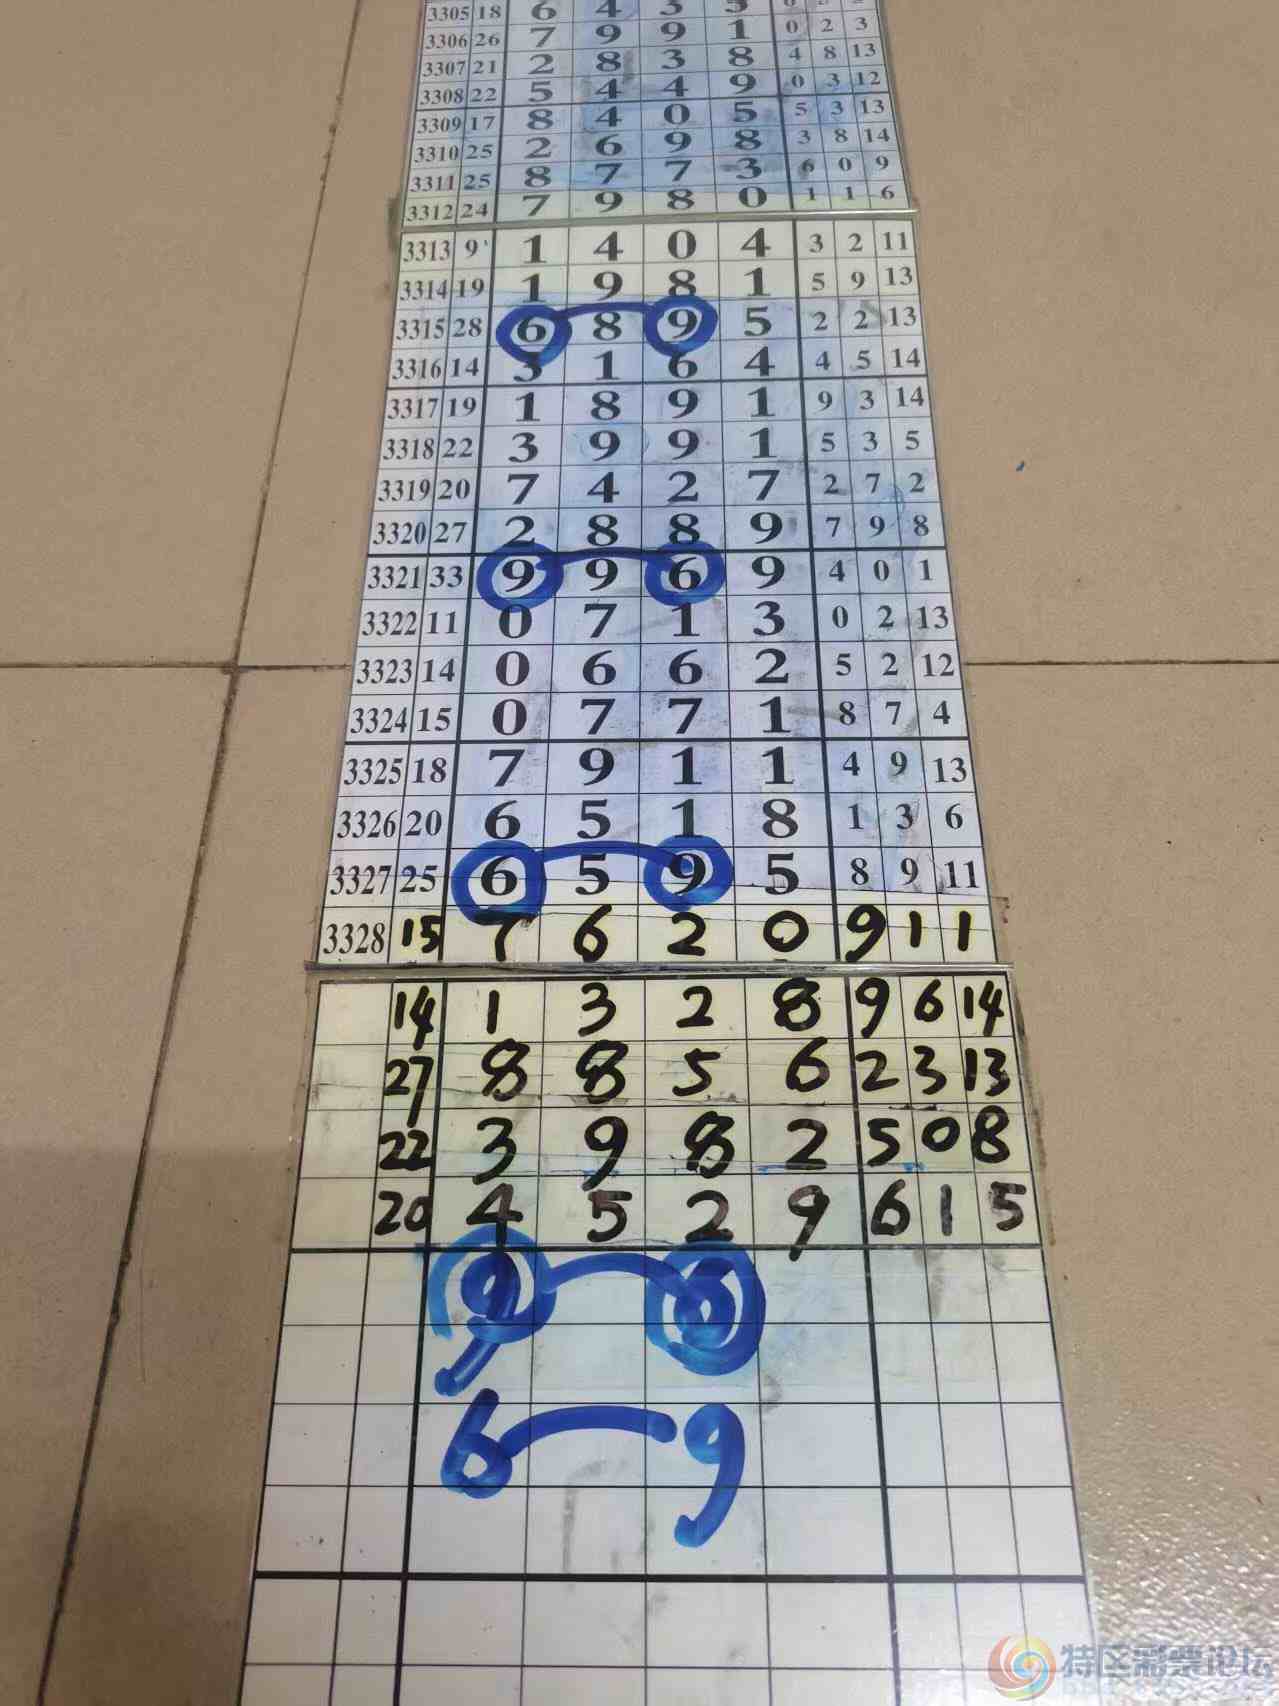 3305 18 6 4 3 5 0
3306 26 7 9 9 1 0 2 3
3307 21 2 8 3 8 4 8 13
3308 22 5 4 4 9 0 3 12
3309 17 8 4 0 5 5 3 13
3310 25 2 6 9 8 3 8 14
3311 25 8 7 7 3 6 0 9
3312 24 7 9 8 0 1 1 6
3313 9 1 4 0 4 3 2 11
3314 19 1 9 8 1 5 9 13
3315 28 6 8 9 5 2 2 13
3316 14 3 1 6 4 4 5 14
3317 19 1 8 9 1 9 3 14
3318 22 3 9 9 1 5 3 5
3319 20 7 4 2 7 2 7 2
3320 27 2 8 8 9 7 9 8
3321 33 9 9 6 9 4 0 1
3322 11 0 7 1 3 0 2 13
3323 14 0 6 6 2 5 2 12
3324 15 0 7 7 1 8 7 4
3325 18 7 9 1 1 4 9 13
3326 20 6 5 1 8 1 3 6
3327 25 6 5 9 5 8 9 11
3328 15 7 6 2 0 9 1 1
14 1 3 2 8 9 6 14
27 8 8 5 6 2 3 13
22 3 9 8 2 5 0 8
20 4 5 2 9 6 1 5
9 6
6 9
特区彩票论坛